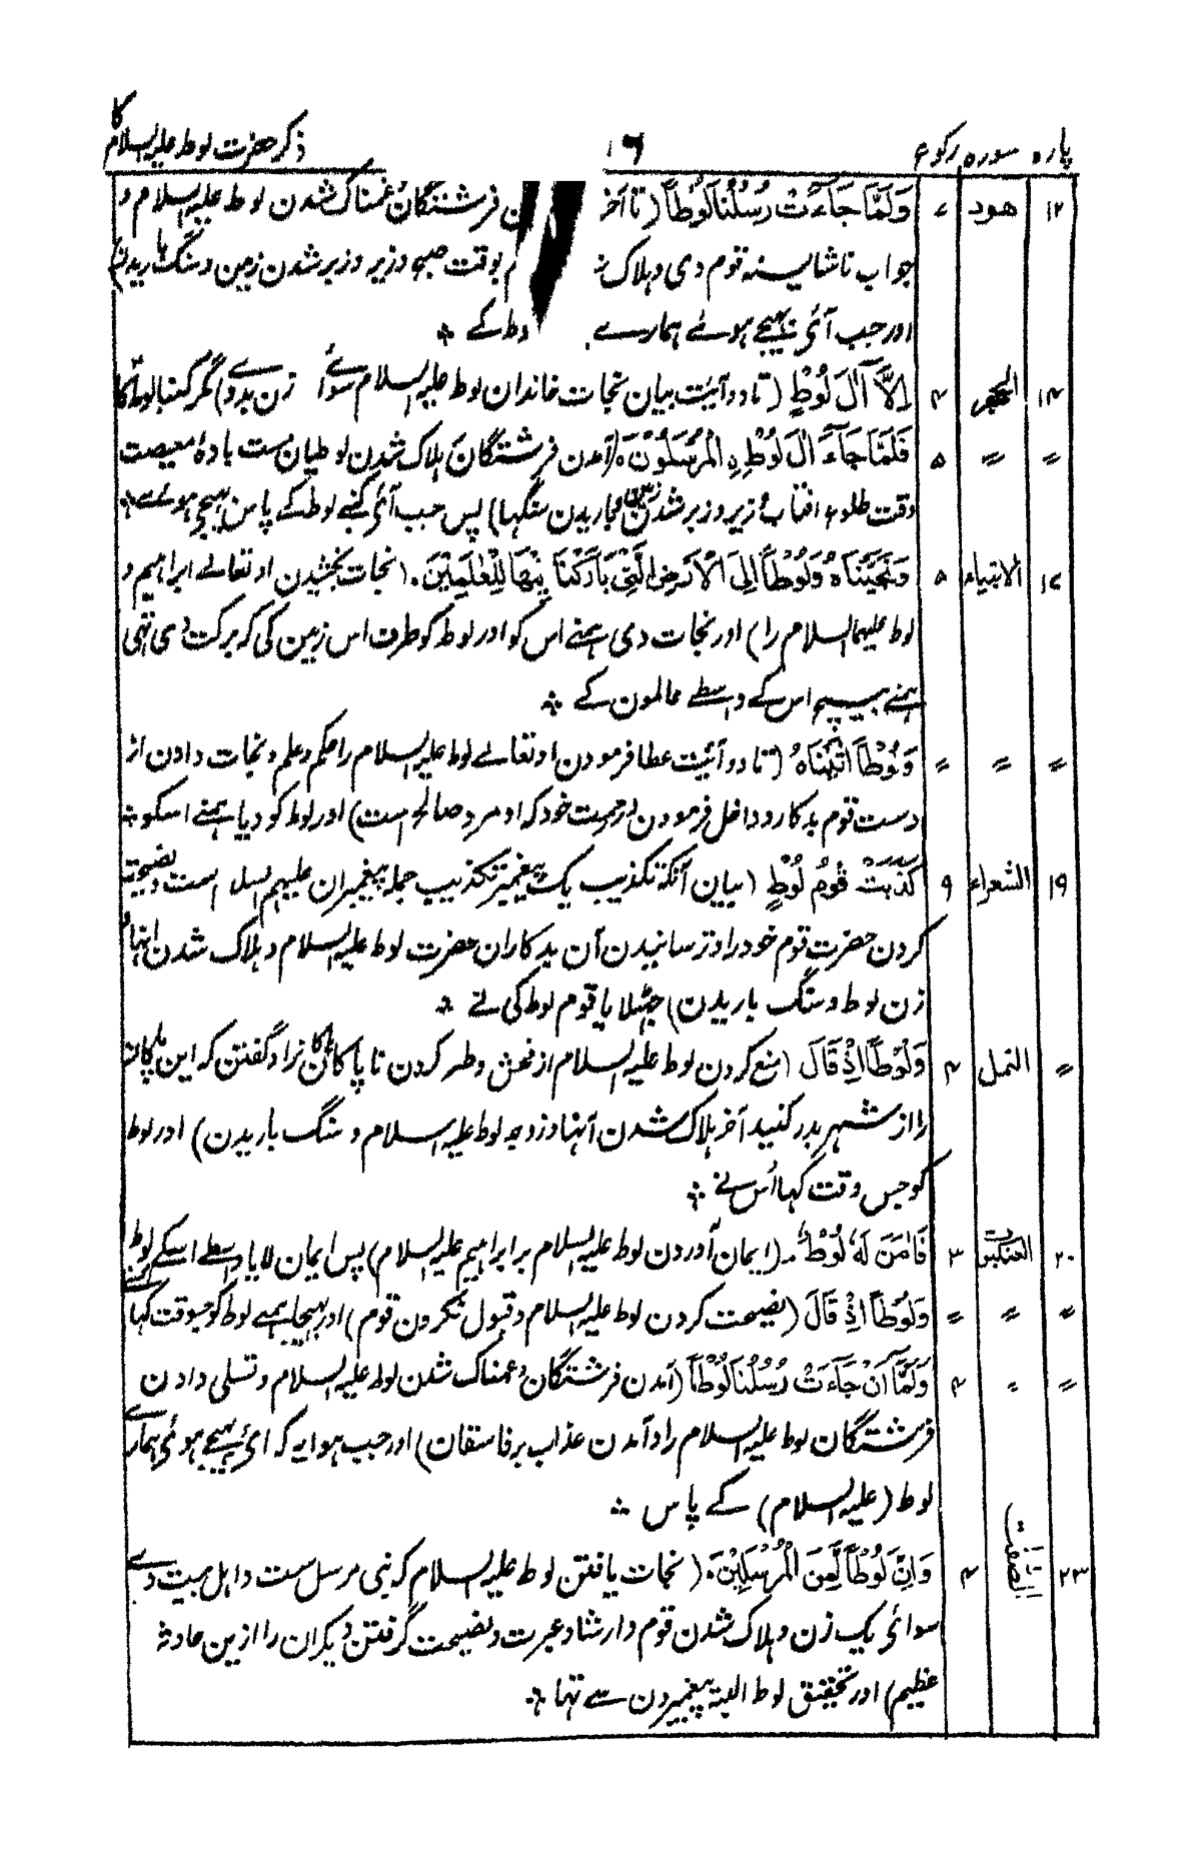 پارہ سورہ رکوع ۱۶ ذکر حضرت لوط علیہ السلام کا
۱۲ ھود ۷ وَلَمَّا جَآءَتْ رُسُلُنَا لُوْطًا (تا آخر ن فرشتگان و غمناک شدن لوط علیہ السلام و
جواب ناشایستہ قوم وی و ہلاک م بوقت صبح و زیر و زبر شدن زمین و سنگہا باریدن)
اور جب آئی بھیجے ہوئے ہمارے وط کے ٭
۱۴ الحجر ۴ اِلَّآ اٰلَ لُوْطٍ (تا دو آیت بیان نجات خاندان لوط علیہ السلام سوائے زن بدو) مگر کنبا لوط کا
〃 〃 ۵ فَلَمَّا جَآءَ اٰلَ لُوْطِ ِۨالْمُرْسَلُوْنَ (آمدن فرشتگان و ہلاک شدن لوطیان مست بادۂ معصیت
وقت طلوع افتاب و زیر و زبر شدن زمین و باریدن سنگہا) پس جب آئی کنبے لوط کے پاس بھیجے ہوئے ٭
۱۷ الانبیاء ۵ وَنَجَّیْنٰہُ وَلُوْطًا اِلَی الْاَرْضِ الَّتِیْ بَارَکْنَا فِیْہَا لِلْعٰلَمِیْنَ۔ (نجات بخشیدن او تعالے ابراہیم و
لوط علیہما السلام را) اور نجات دی ہمنے اس کو اور لوط کو طرف اس زمین کی کہ برکت دی تھی
ہمنے بیچ اس کے واسطے عالمون کے ٭
〃 〃 〃 وَلُوْطًا اٰتَیْنٰہُ (تا دو آیت عطا فرمودن او تعالے لوط علیہ السلام را حکم و علم و نجات دادن از
دست قوم بدکار و داخل فرمودن در رحمت خود کہ او مرد صالح است) اور لوط کو دیا ہمنے اسکو ٭
۱۹ الشعراء ۹ کَذَّبَتْ قَوْمُ لُوْطٍ (بیان آنکہ تکذیب یک پیغمبر تکذیب جملہ پیغمبران علیہم السلام است و نصیحت
کردن حضرت قوم خود را و ترسانیدن آن بدکاران حضرت لوط علیہ السلام و ہلاک شدن اینہا و
زن لوط و سنگ باریدن) جھٹلایا قوم لوط کی نے ٭
〃 النمل ۴ وَلُوْطًا اِذْ قَالَ (منع کردن لوط علیہ السلام از فحش و طہر کردن ناپاکان پاکان را و گفتن کہ این پاکان
را از شہر بدر کنید آخر ہلاک شدن آنہا و زوجہ لوط علیہ السلام و سنگ باریدن) اور لوط
کو جس وقت کہا اُس نے ٭
۲۰ العنکبوت ۳ فَاٰمَنَ لَہٗ لُوْطٌ۔ (ایمان آوردن لوط علیہ السلام بر ابراہیم علیہ السلام) پس ایمان لایا واسطے اسکے لوط
〃 〃 〃 وَلُوْطًا اِذْ قَالَ (نصیحت کردن لوط علیہ السلام و قبول نکردن قوم) اور بھیجا ہمنے لوط کو جسوقت کہا اُسنے
〃 〃 ۴ وَلَمَّآ اَنْ جَآءَتْ رُسُلُنَا لُوْطًا (آمدن فرشتگان و غمناک شدن لوط علیہ السلام و تسلی دادن
فرشتگان لوط علیہ السلام را و آمدن عذاب بر فاسقان) اور جب ہوا یہ کہ آئی بھیجے ہوئی ہمارے
لوط (علیہ السلام) کے پاس ٭
۲۳ الصّٰفّٰت ۴ وَاِنَّ لُوْطًا لَّمِنَ الْمُرْسَلِیْنَ۔ (نجات یافتن لوط علیہ السلام کہ نبی مرسل ست و اہل بیت وے
سوائی یک زن و ہلاک شدن قوم و ارشاد عبرت و نصیحت گرفتن دیگران را ازین حادثہ
عظیم) اور تحقیق لوط البتہ پیغمبرون سے تہا ٭